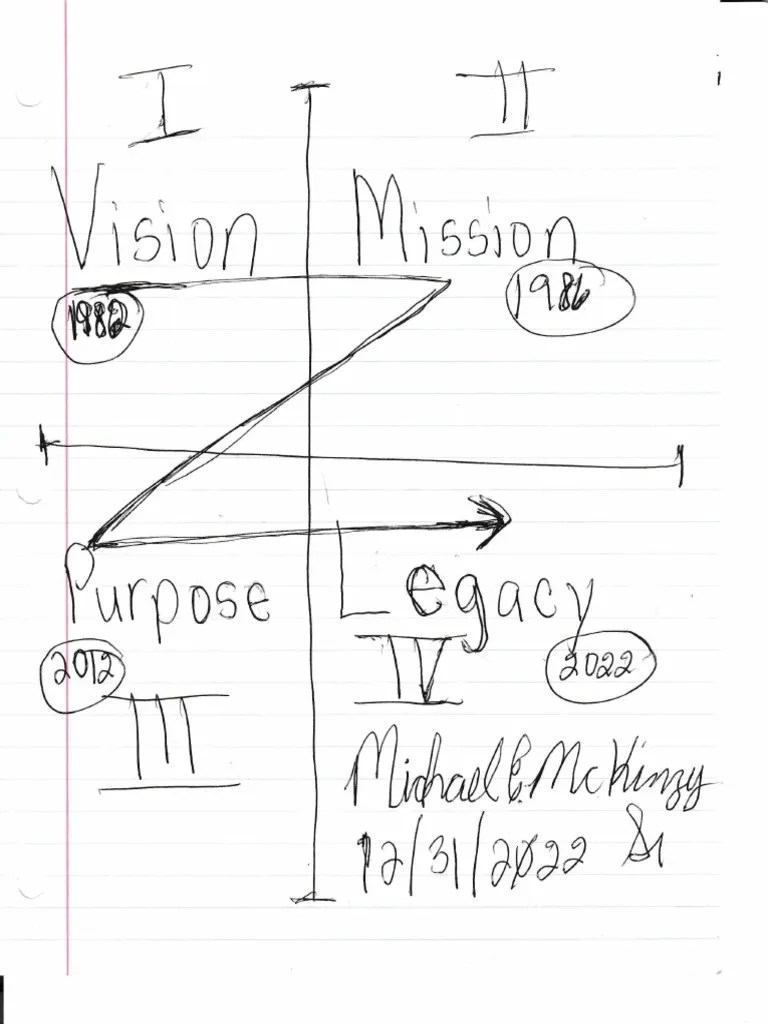 I II
Vision Mission
1982 1986
Purpose Legacy
2012 IV 2022
III
Michael E. McKinzy
12/31/2022 Sr